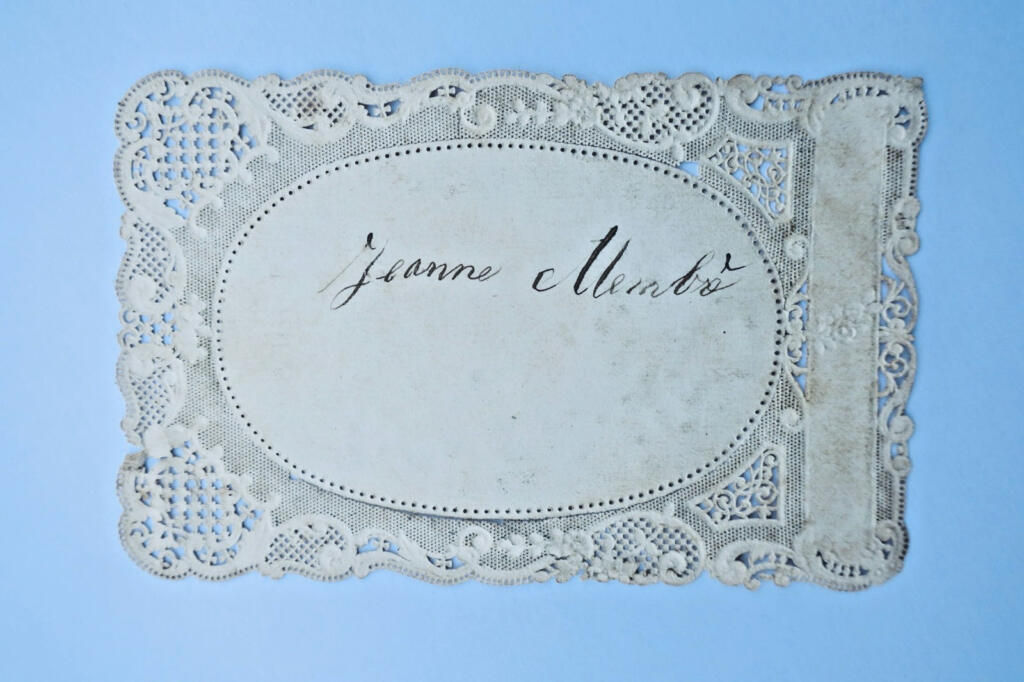 Jeanne Membò